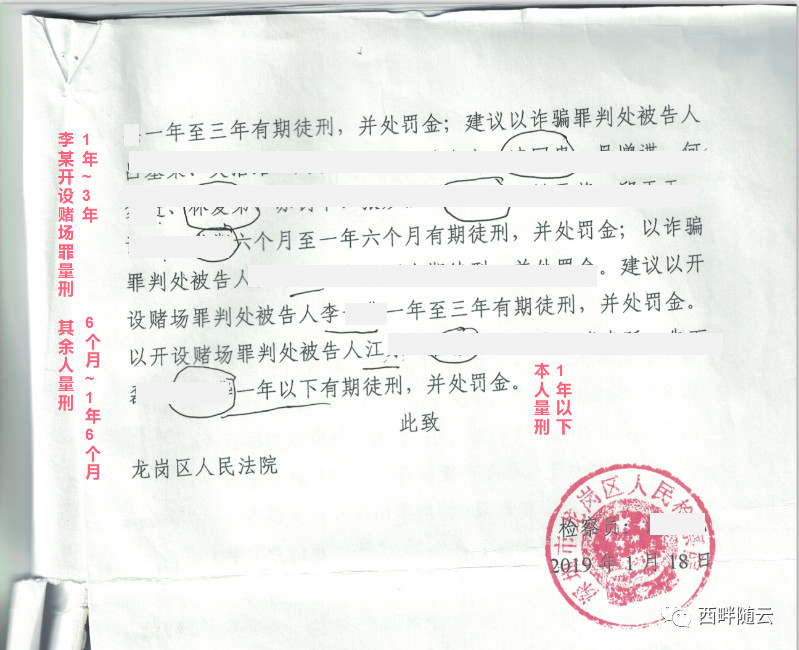 一年至三年有期徒刑，并处罚金；建议以诈骗罪判处被告人
六个月至一年六个月有期徒刑，并处罚金；以诈骗
罪判处被告人 并处罚金。建议以开
设赌场罪判处被告人李 一年至三年有期徒刑，并处罚金。
以开设赌场罪判处被告人江
一年以下有期徒刑，并处罚金。
此致
龙岗区人民法院
检察员：
2019 年 1 月 18 日
深圳市龙岗区人民检察院
李某开设赌场罪量刑
1年~3年
其余人量刑
6个月~1年6个月
本人量刑
1年以下
西畔随云